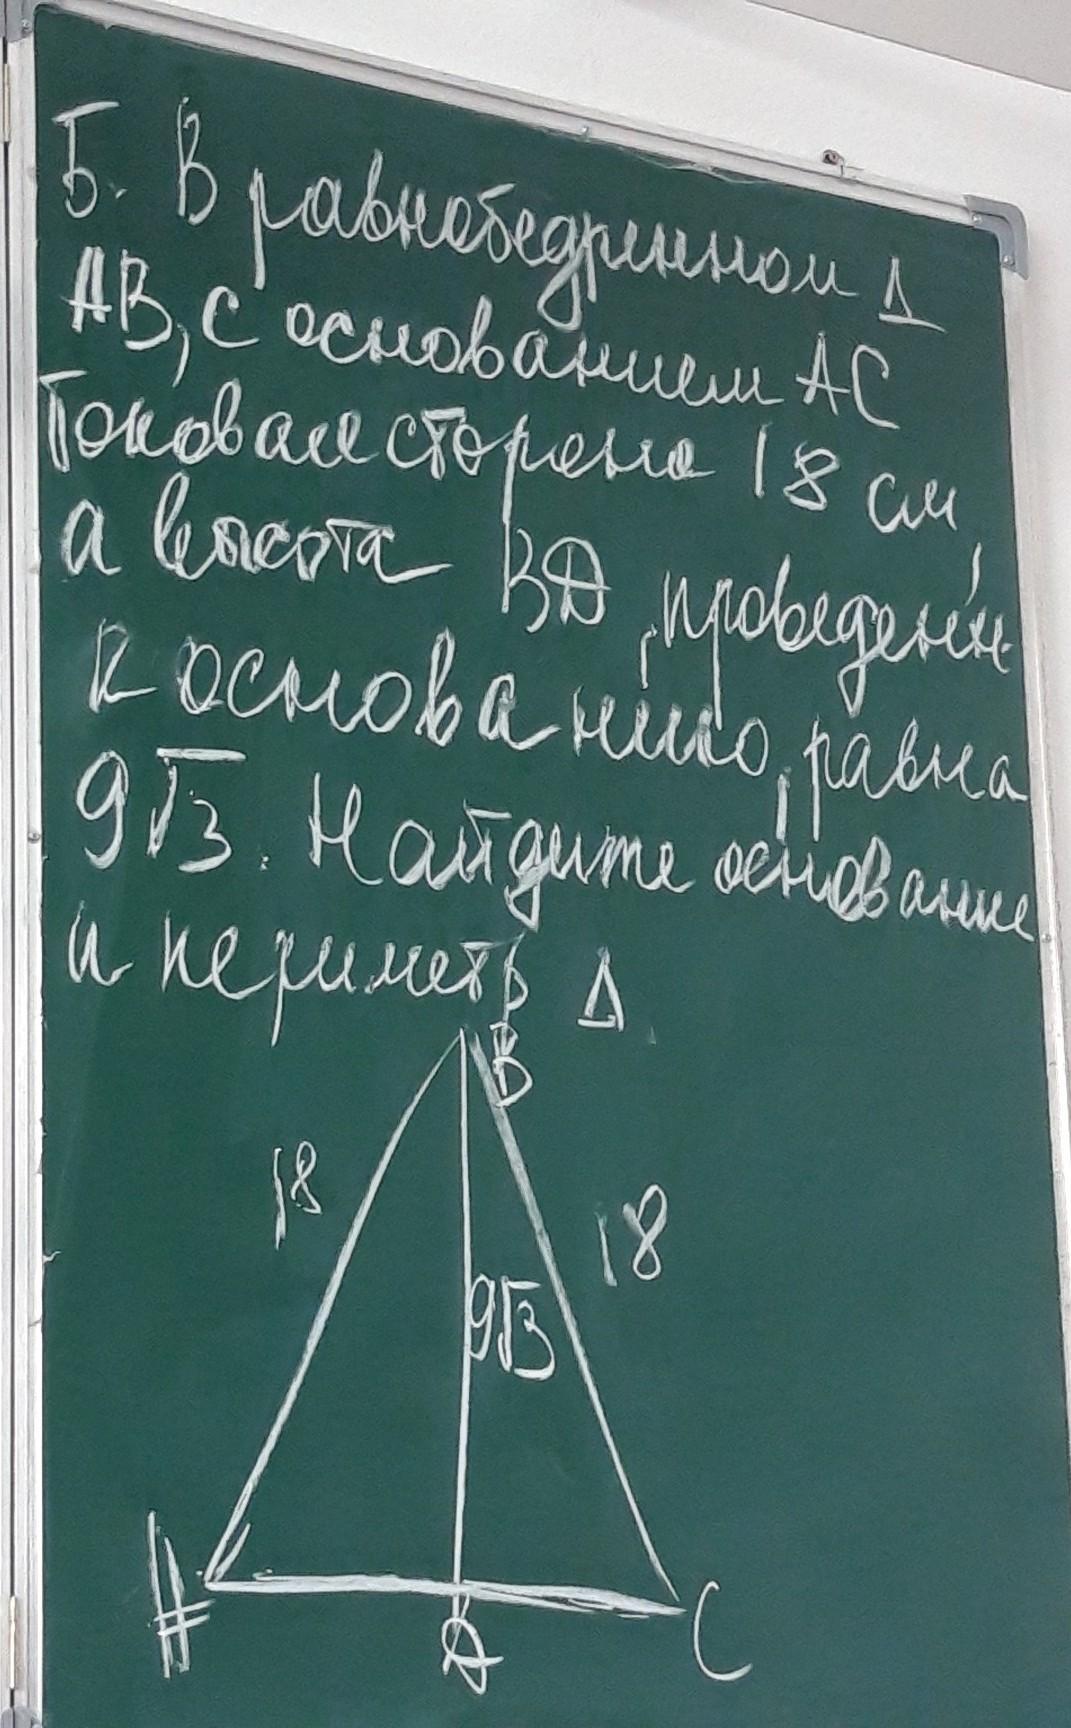 Б. В равнобедренном Δ
АВ, с основанием АС
Боковая сторона 18 см,
а высота ВД, проведенн
к основанию, равна
9√3. Найдите основание
и периметр Δ
В
18
18
9√3
А
Д
С